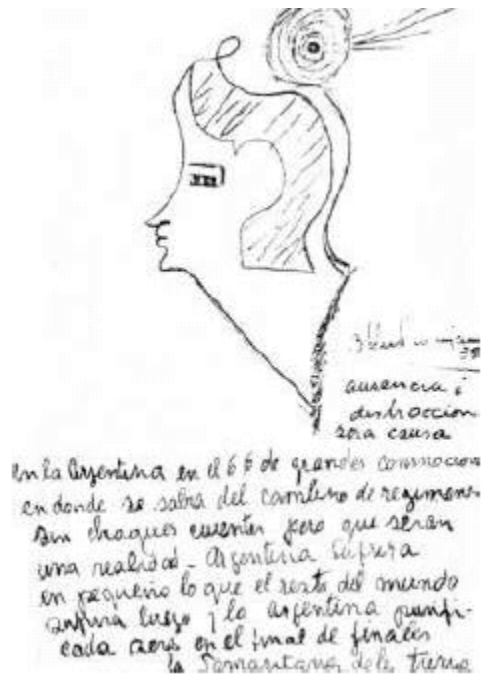 ausencia é
distraccion
sera causa
en la Argentina en el 66 de grandes conmocion
en donde se sabra del cambio de regimenes
sin choques cuentes pero que seran
una realidad - Argentina Sufrira
en pequeño lo que el resto del mundo
sufrira luego y la argentina purifi-
cada sera en el final de finales
la Samaritana de la tierra